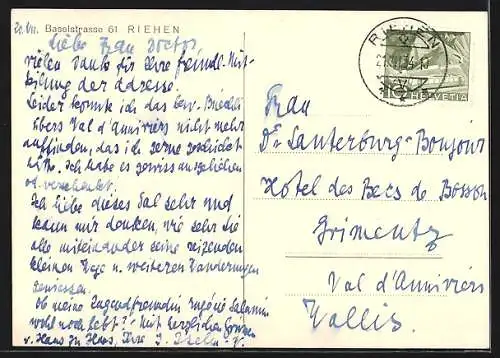 20.VII. Baselstrasse 61 RIEHEN
Liebe Frau Doctor,
vielen Dank für Ihre freundl. Mit-
teilung der Adresse.
Leider konnte ich das
übers Val d'Anniviers nicht mehr
auffinden, das ich gerne geschickt
hätte. Ich habe es gewiss ausgeliehen
od. verschenkt.
Ich liebe dieses Tal sehr und
kann mir denken, wie sehr Sie
alle miteinander seine reizenden
kleinen Wege u. weiteren Wanderungen
geniessen.
Ob meine Jugendfreundin Salamin
wohl noch lebt? Mit herzlichen Grüssen
v. Haus zu Haus, Ihre
RIEHEN
HELVETIA
Frau
Dr. Lauterburg-Bonjour
Hôtel des Becs de Bosson
Grimentz
Val d'Anniviers
Wallis.